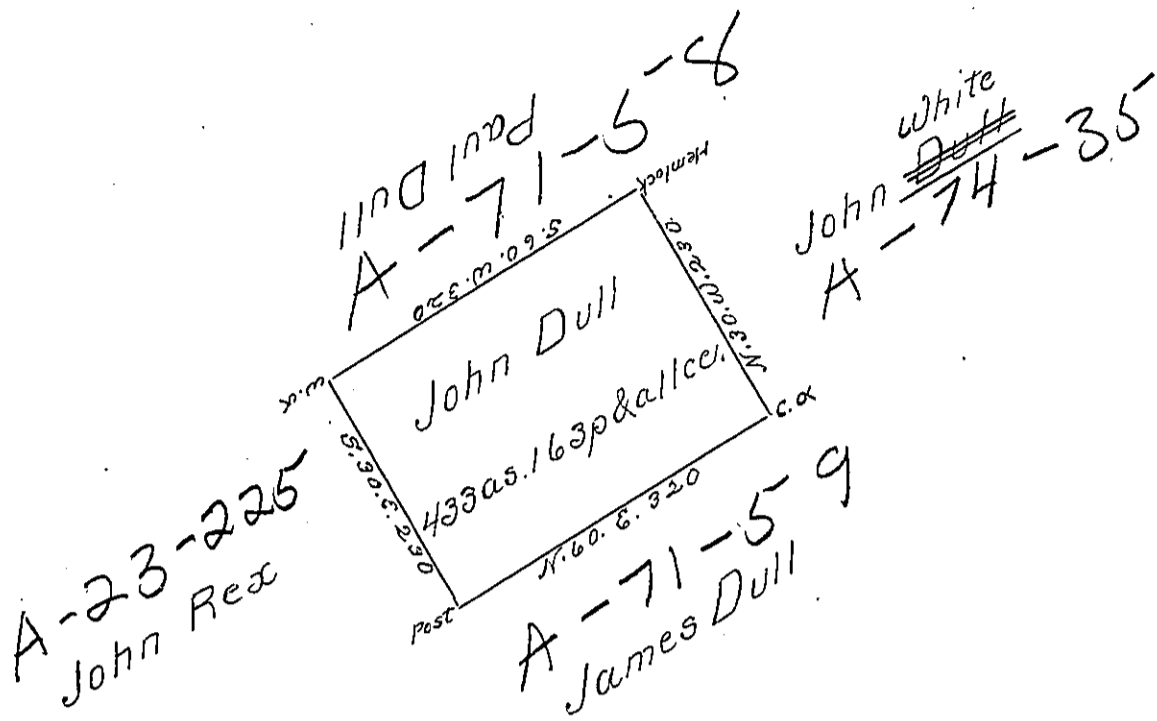 Paul Dull
A-71-5-8
White
John Dull
A-74-35
Hemlock
S.60.W.320
N.30.W.230
John Dull
433as.163p&allce.
W.
S.30.E.230
C.
N.60.E.320
Post
A-23-225
John Rex
A-71-59
James Dull